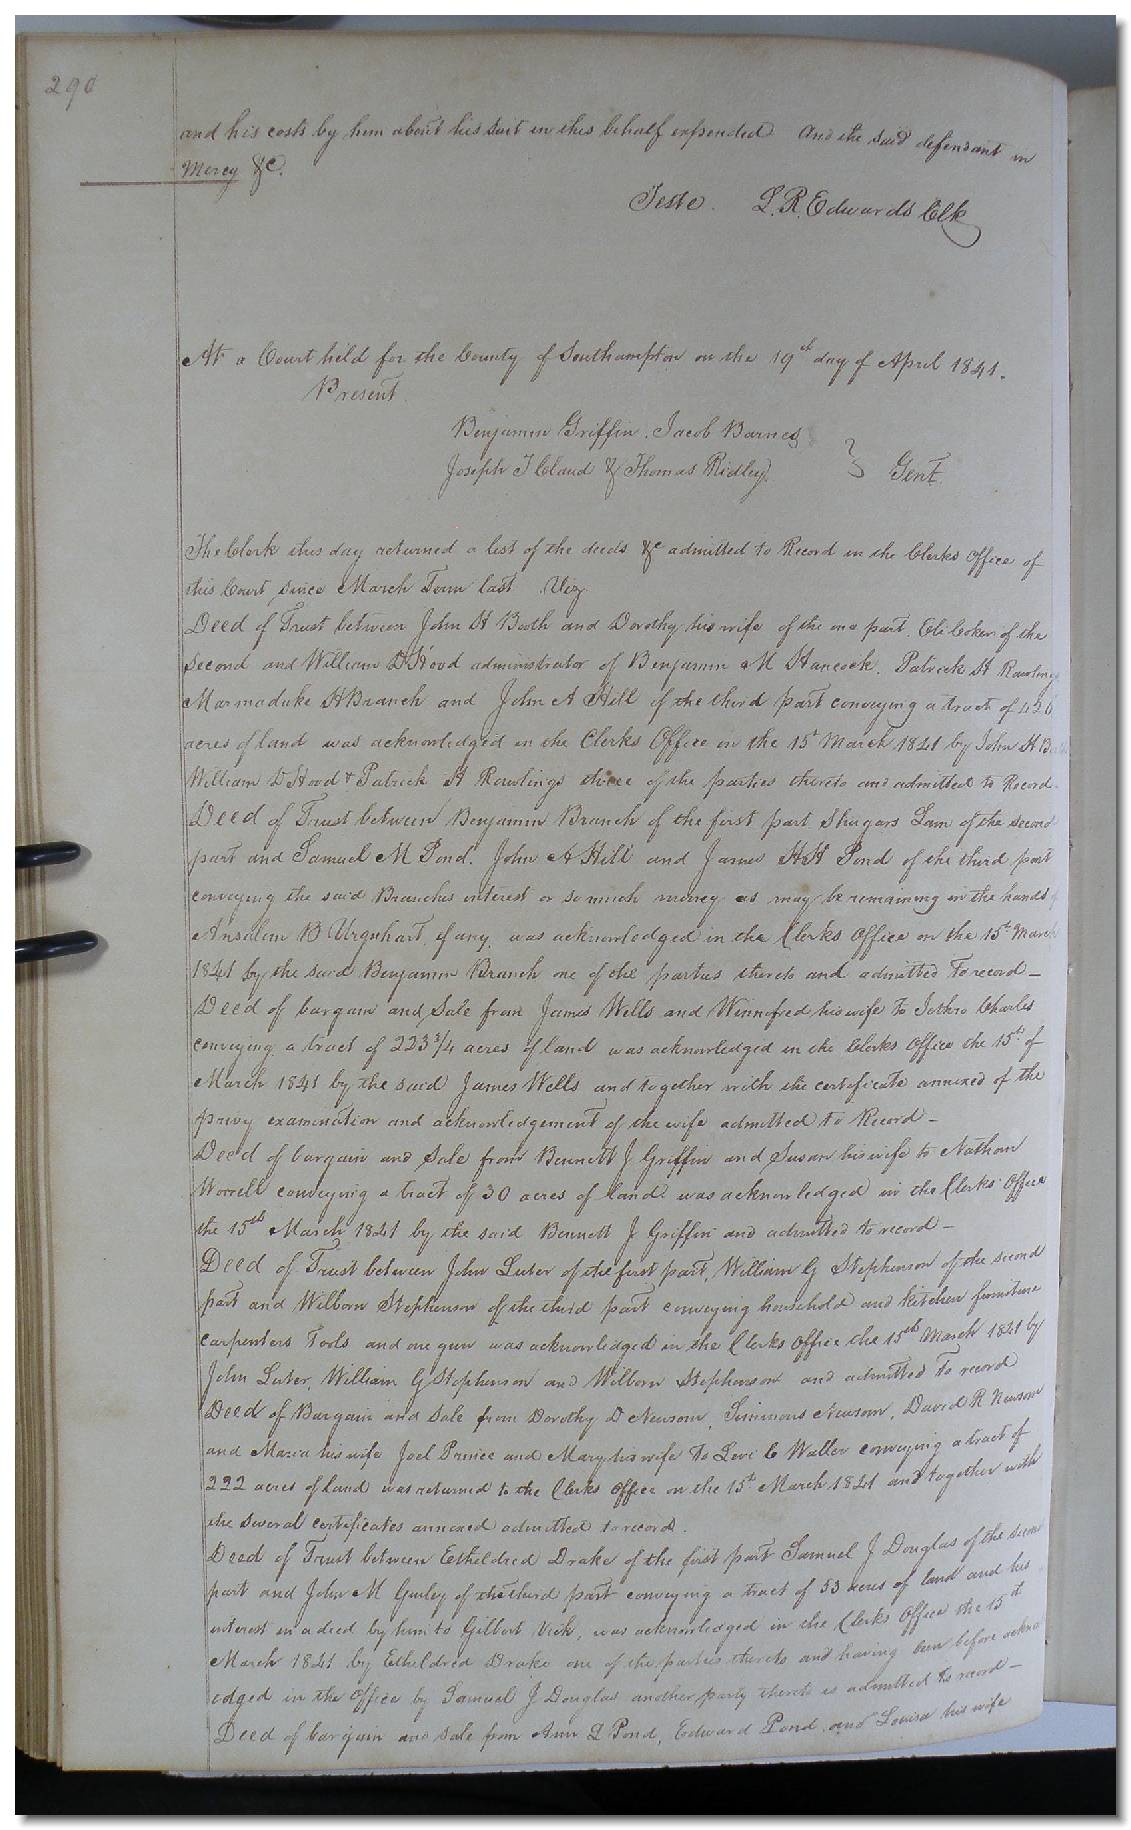 290
and his costs by him about his suit in this behalf expended And the said defendant in
Mercy &c.
Teste. L. R. Edwards Clk
At a Court held for the County of Southampton on the 19th day of April 1841.
Present
Benjamin Griffin. Jacob Barnes
Joseph T Claud & Thomas Ridley } Gent.
The Clerk this day returned a list of the deeds &c admitted to Record in the Clerks Office of
this Court since March Term last Viz
Deed of Trust between John H Booth and Dorothy his wife of the one part, Eli of the
second and William D Hood administrator of Benjamin M Hancock. Patrick H Rawlings
Marmaduke H Branch and John A Hill of the third part conveying a tract of 420
acres of land was acknowledged in the Clerks Office on the 15t March 1841 by John H
William D Hood & Patrick H Rawlings three of the parties thereto and admitted to Record.
Deed of Trust between Benjamin Branch of the first part Shugars Lain of the second
part and Samuel M Pond. John A Hill and James H H Pond of the third part
conveying the said Branches interest or so much money as may be remaining in the hands
Ansalem B Urquhart, if any, was acknowledged in the Clerks Office on the 15th March
1841 by the said Benjamin Branch one of the parties thereto and admitted To record —
Deed of bargain and Sale from James Wells and Winnofred his wife to Jethro Charles
conveying a tract of 223 3/4 acres of land was acknowledged in the Clerks Office the 15th of
March 1841 by the said James Wells and together with the certificate annexed of the
privy examination and acknowledgement of the wife admitted to Record —
Deed of bargain and Sale from Bennett J Griffin and Susan his wife to Nathan
Worrell conveying a tract of 30 acres of land was acknowledged in the Clerks Office
the 15th March 1841 by the said Bennett J Griffin and admitted to record —
Deed of Trust between John Luter of the first part, William G Stephenson of the second
part and Wilborn Stephenson of the third part conveying household and kitchen furniture
carpenters Tools and one gun was acknowledged in the Clerks Office the 15th March 1841 by
John Luter, William G Stephenson and Wilborn Stephenson and admitted To record
Deed of Bargain and Sale from Dorothy D Newsom, Simmons Newsom, David R Newsom
and Maria his wife Joel Prince and Mary his wife To Levi C Waller conveying a tract of
222 acres of land was returned to the Clerks Office on the 15th March 1841 and together with
the several certificates annexed admitted to record.
Deed of Trust between Etheldred Drake of the first part Samuel J Douglas of the second
part and John M Gurley of the third part conveying a tract of 53 acres of land and his
interest in a deed by him to Gilbert Vick, was acknowledged in the Clerks Office the 15th
March 1841 by Etheldred Drake one of the parties thereto and having been before acknow
ledged in the Office by Samuel J Douglas another party thereto is admitted to record —
Deed of bargain and Sale from Ann L Pond, Edward Pond and Louisa his wife